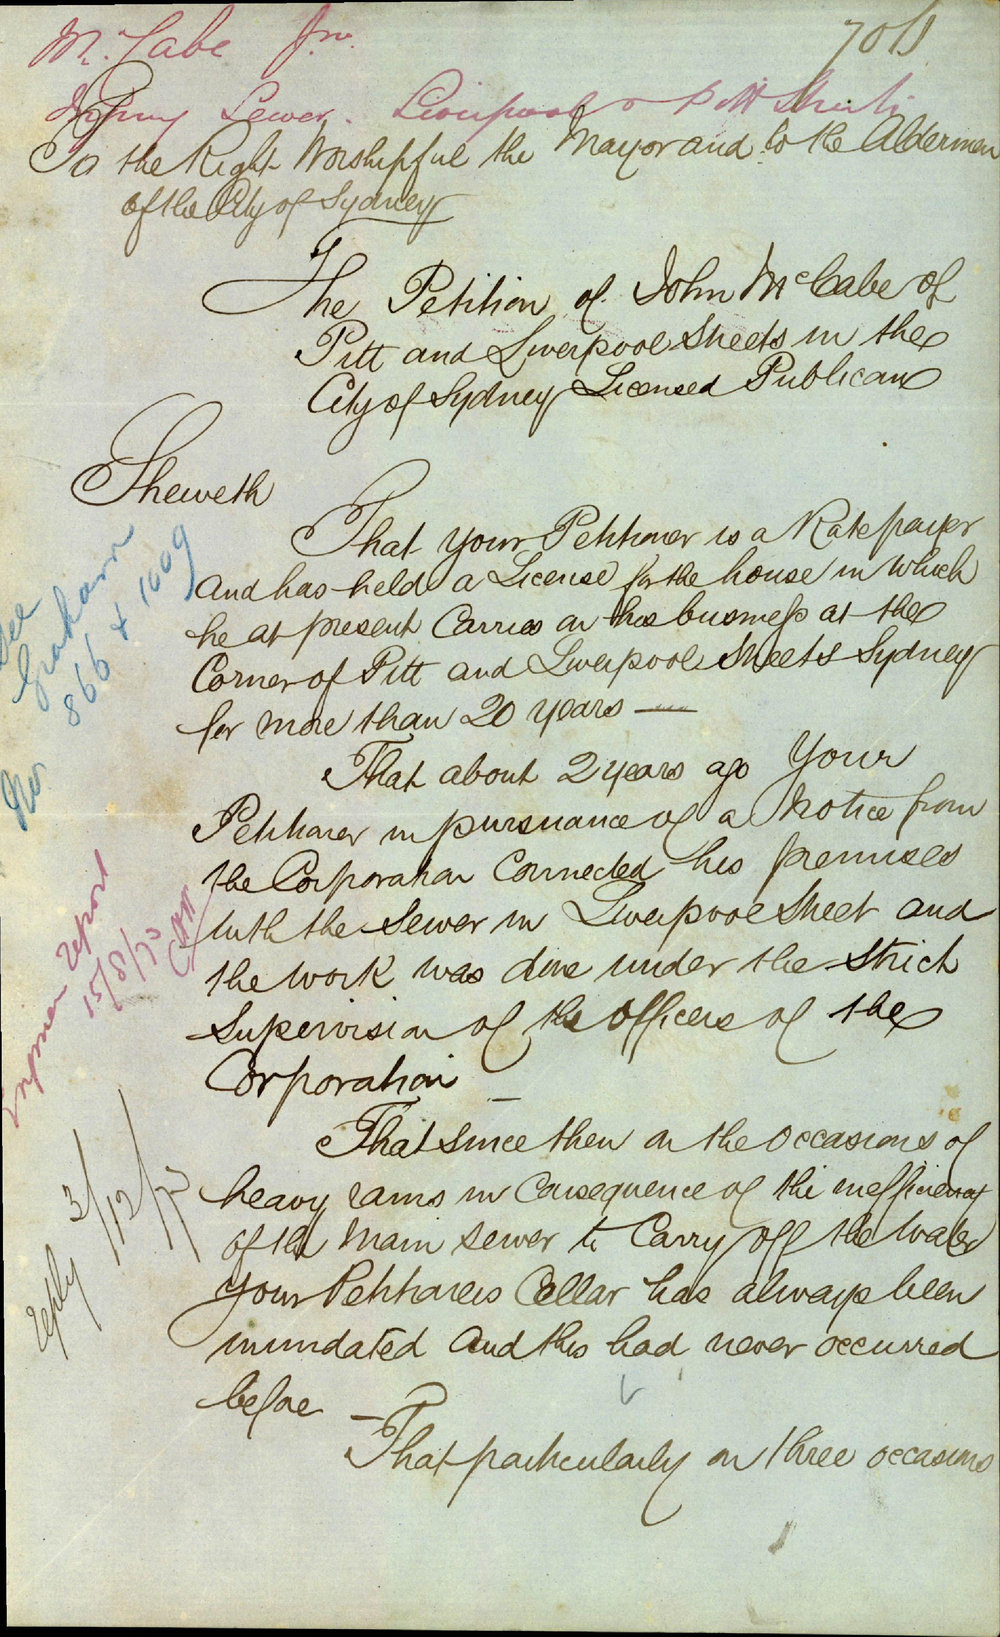 McCabe Jno.
701
Sewer. Liverpool & Pitt Streets
To the Right Worshipful the Mayor and to the Aldermen
of the City of Sydney
The Petition of John McCabe of
Pitt and Liverpool Streets in the
City of Sydney Licensed Publican
Sheweth
That your Petitioner is a Ratepayer
and has held a License for the house in which
he at present Carries on his business at the
Corner of Pitt and Liverpool Streets Sydney
for more than 20 years —
That about 2 years ago Your
Petitioner in pursuance of a Notice from
the Corporation Connected his premises
with the Sewer in Liverpool Street and
the work was done under the strict
Supervision of the Officers of the
Corporation —
That since then on the occasions of
heavy rains in Consequence of the inefficiency
of the Main Sewer to Carry off the water
your Petitioners Cellar has always been
inundated and this had never occurred
before —
That particularly on three occasions
See
Graham
866 & 1009
No
report
15/8/73
reply 3/12/73